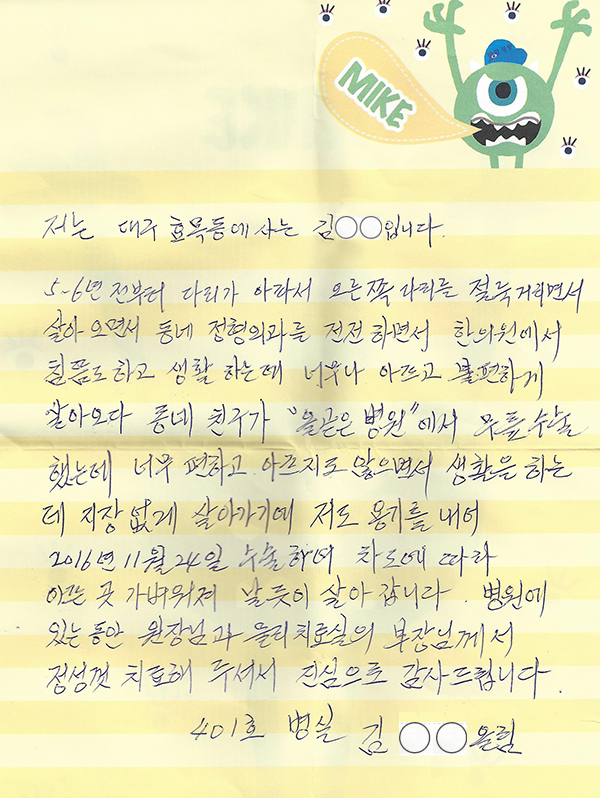 MIKE
저는 대구 효목동에 사는 김○○입니다.
5~6년 전부터 다리가 아파서 오른쪽 다리를 절뚝거리면서
살아오면서 동네 정형외과를 전전하면서 한의원에서
침품도하고 생활하는데 너무나 아프고 불편하게
살아오다 동네 친구가 "올곧은병원"에서 무릎수술
했는데 너무 편하고 아프지도 않으면서 생활을 하는
데 지장 없게 살아가기에 저도 용기를 내어
2016년 11월 24일 수술하여 차도에 따라
아픈 곳 가벼워져 날듯이 살아 갑니다. 병원에
있는동안 원장님과 물리치료실의 부장님께서
정성껏 치료해 주셔서 진심으로 감사드립니다.
401호 병실 김 ○○올림